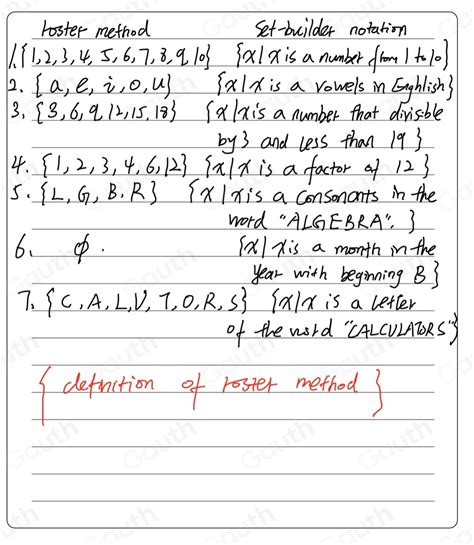 roster method Set-builder notation
1. {1,2,3,4,5,6,7,8,9,10} {x/x is a number from 1 to 10}
2. {a, e, i, o, u} {x/x is a vowels in Enghlish}
3. {3,6,9,12,15,18} {x/x is a number that divisble
by 3 and less than 19}
4. {1, 2, 3, 4, 6, 12} {x/x is a factor of 12}
5. {L, G, B, R} {x/x is a consonants in the
word "ALGEBRA". }
6. ∅. {x/x is a month in the
year with beginning B}
7. {C, A, L, U, T, O, R, S} {x/x is a letter
of the word "CALCULATORS"}
{ definition of roster method }
Gauth